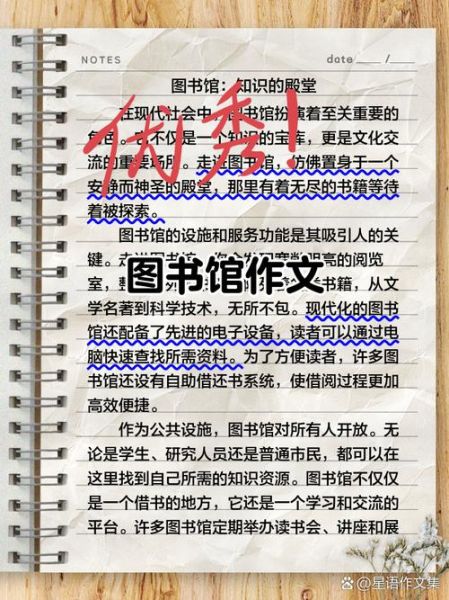 NOTES
date ／
图书馆：知识的殿堂
在现代社会中，图书馆扮演着至关重要的
角色。它不仅是一个知识的宝库，更是文化交
流的重要场所。走进图书馆，仿佛置身于一个
安静而神圣的殿堂，那里有着无尽的书籍等待
着被探索。
优秀！
图书馆的设施和服务功能是其吸引人的关
键。走进图书馆，
明亮的阅览
室，
书籍，从文
图书馆作文
学名著到科学技术，无所不包。现代化的图书
馆还配备了先进的电子设备，读者可以通过电
脑快速查找所需资料。为了方便读者，许多图
书馆还设有自助借还书系统，使借阅过程更加
高效便捷。
作为公共设施，图书馆对所有人开放。无
论是学生、研究人员还是普通市民，都可以在
这里找到自己所需的知识资源。图书馆不仅仅
是一个借书的地方，它还是一个学习和交流的
平台。许多图书馆定期举办读书会、讲座和展
@星语作文集